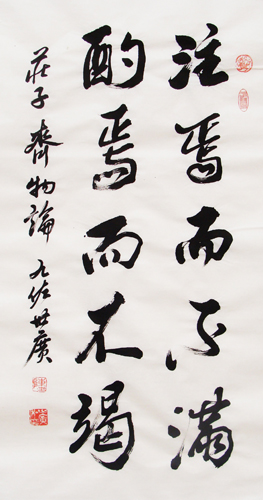 注焉而不滿
酌焉而不竭
莊子齊物論 九佐世廣